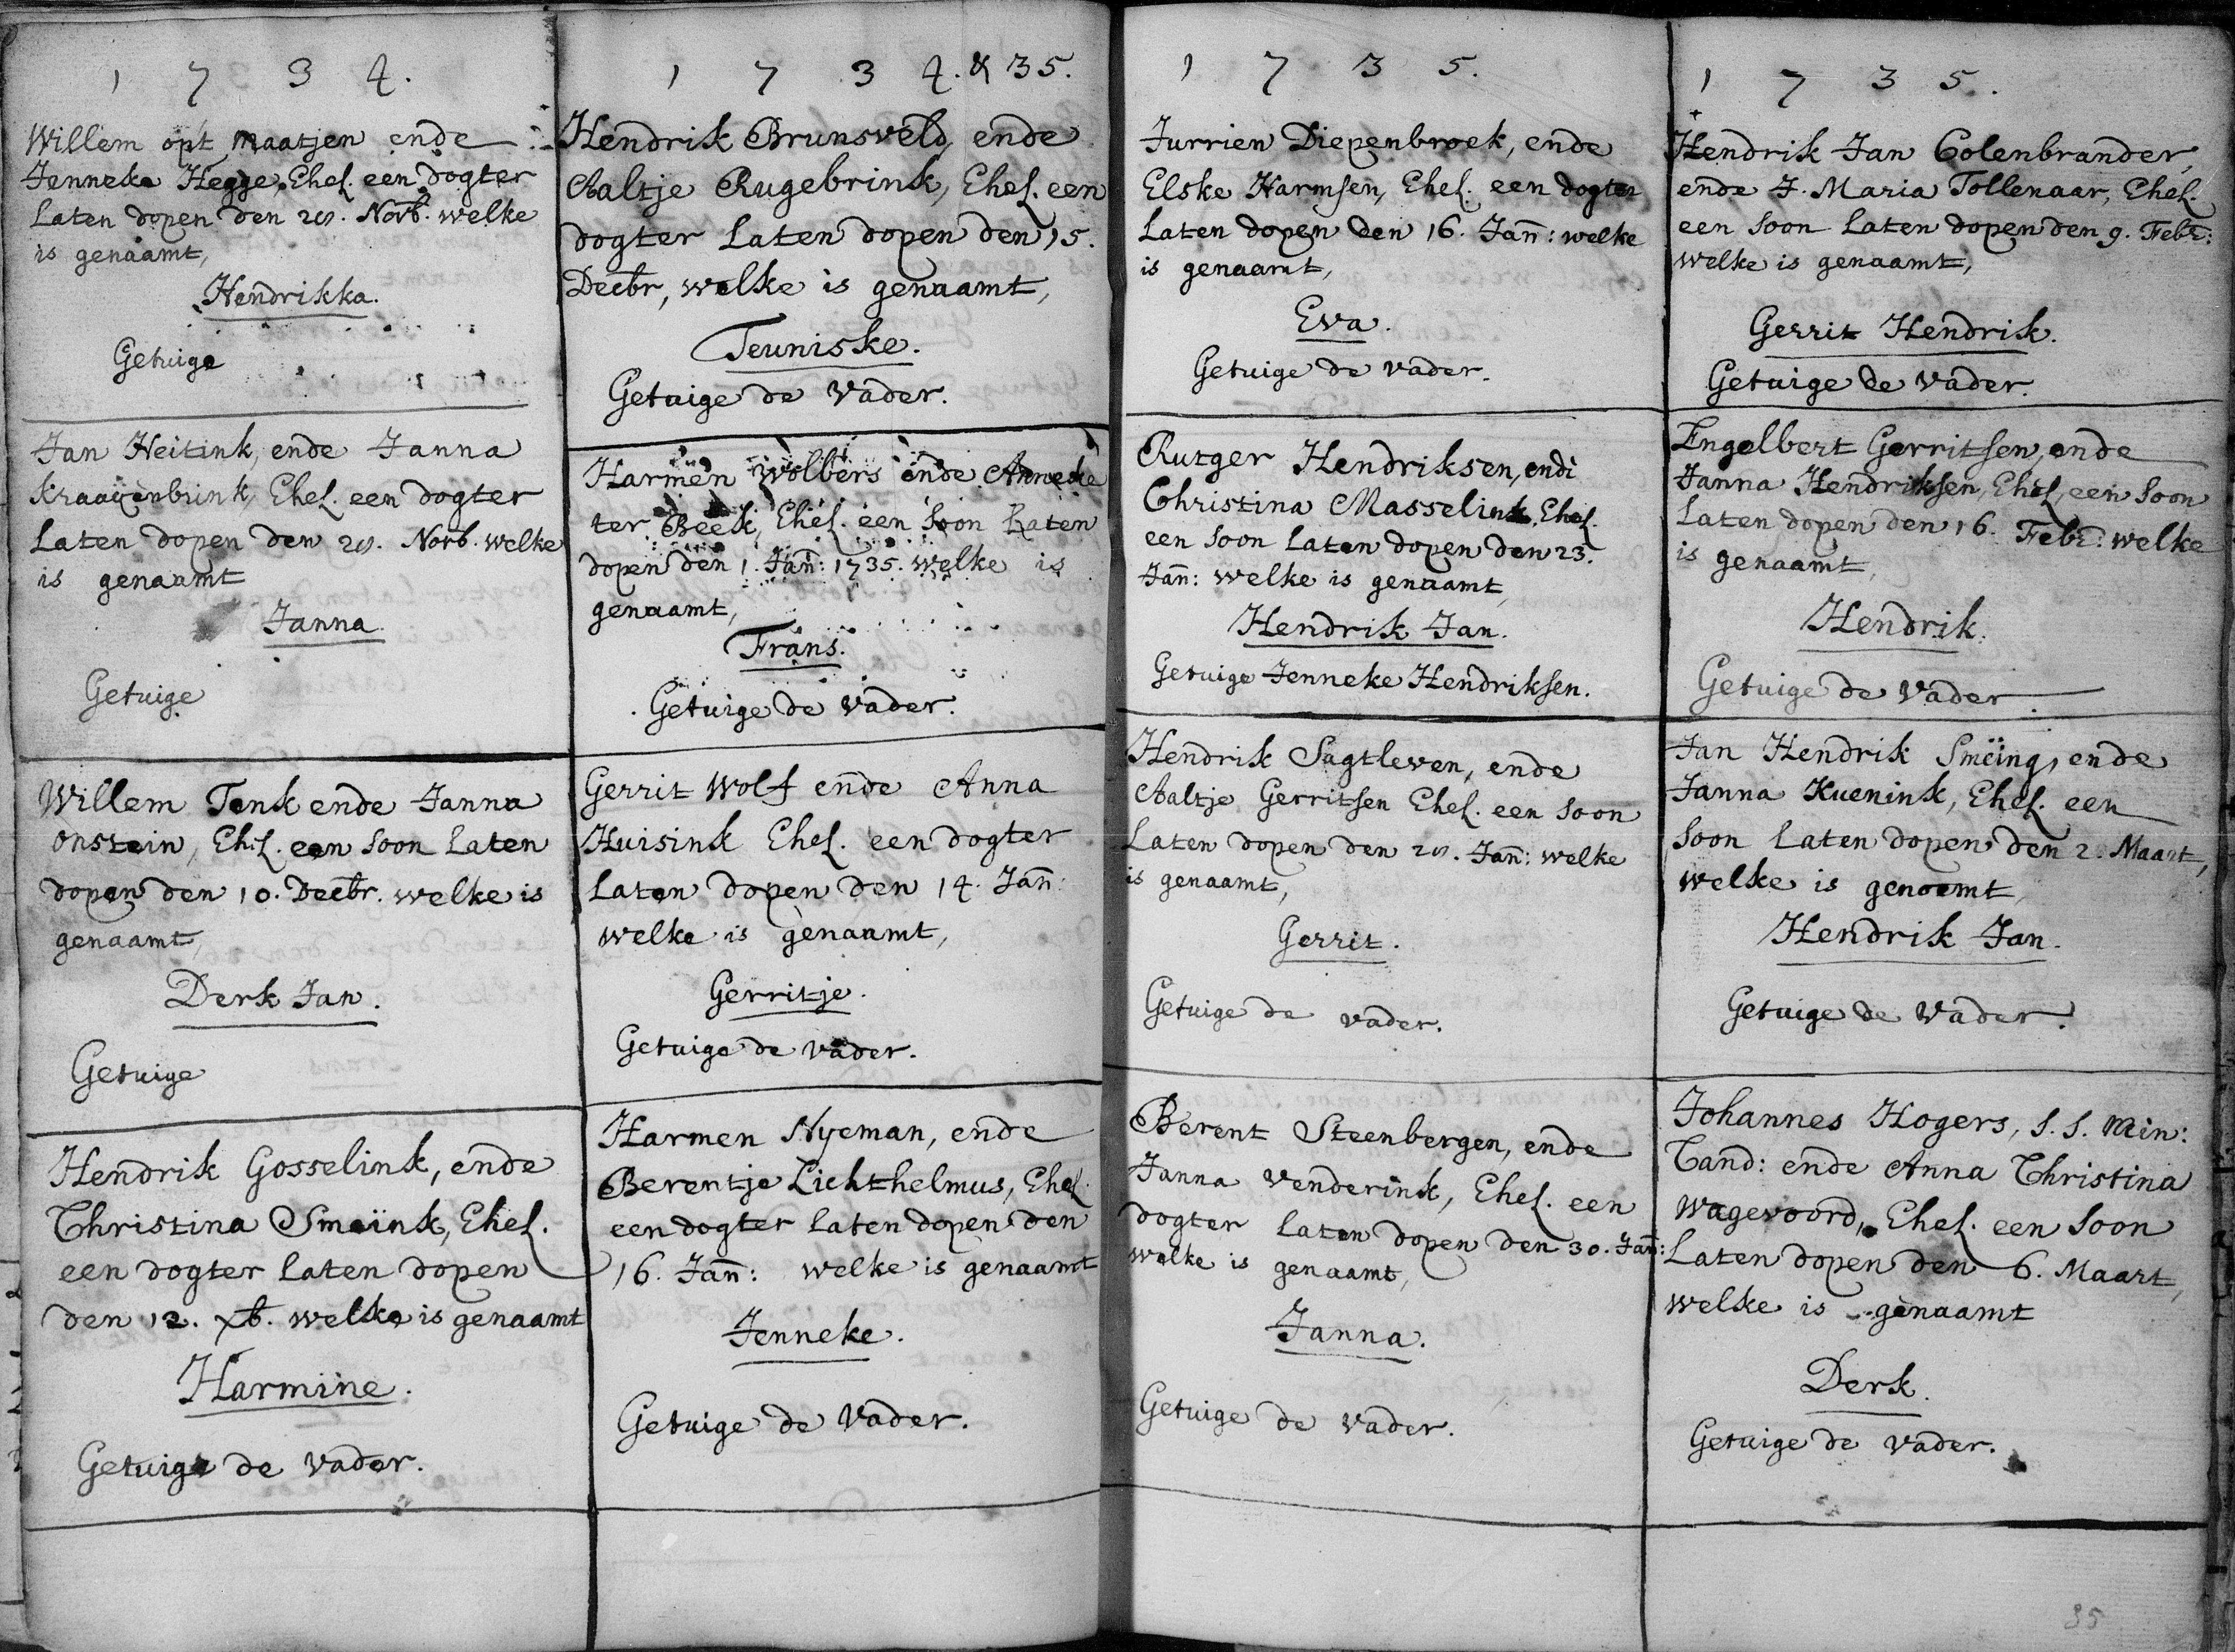 1 7 3 4.
Willem opt Maatjen ende
Jenneke Hegge, Ehel. een dogter
Laten dopen den 28. Novb. welke
is genaamt,
Hendrikka.
Getuige
Jan Heitink, ende Janna
Kraaijenbrink, Ehel. een dogter
Laten dopen den 28. Novb. welke
is genaamt
Janna
Getuige
Willem Tenk ende Janna
Onstein, Ehel. een soon Laten
dopen den 10. Decbr. welke is
genaamt,
Derk Jan.
Getuige
Hendrik Gosselink, ende
Christina Smeïnk, Ehel.
een dogter Laten dopen
den 12. xb. welke is genaamt
Harmine.
Getuige de vader.
1 7 3 4. & 35.
Hendrik Brunsveld, ende
Aaltje Rugebrink, Ehel. een
dogter Laten dopen den 15.
Decbr, welke is genaamt,
Teuniske.
Getuige de Vader.
Harmen Wolbers ende Anneke
ter Beek, Ehel. een soon Laten
dopen den 1. Jañ: 1735. welke is
genaamt,
Frans.
Getuige de Vader.
Gerrit Wolf ende Anna
Huisink Ehel. een dogter
Laten dopen den 14. Jañ:
welke is genaamt,
Gerritje.
Getuige de vader.
Harmen Nyeman, ende
Berentje Lichthelmus, Ehel.
een dogter Laten dopen den
16. Jañ: welke is genaamt
Jenneke.
Getuige de Vader.
1 7 3 5.
Jurrien Diepenbroek, ende
Elske Harmsen, Ehel. een dogter
Laten dopen den 16. Jañ: welke
is genaamt,
Eva.
Getuige de vader.
Rutger Hendriksen, ende
Christina Masselink, Ehel.
een soon Laten dopen den 23.
Jañ: welke is genaamt,
Hendrik Jan.
Getuige Jenneke Hendriksen.
Hendrik Sagtleven, ende
Aaltje Gerritsen Ehel. een soon
Laten dopen den 28. Jañ: welke
is genaamt,
Gerrit.
Getuige de vader.
Berent Steenbergen, ende
Janna Venderink, Ehel. een
dogter Laten dopen den 30. Jañ:
welke is genaamt,
Janna.
Getuige de Vader.
1 7 3 5.
Hendrik Jan Colenbrander,
ende J. Maria Tollenaar, Ehel.
een soon Laten dopen den 9. Febr:
welke is genaamt,
Gerrit Hendrik.
Getuige de Vader.
Engelbert Gerritsen, ende
Janna Hendriksen, Ehel, een soon
Laten dopen den 16. Febr: welke
is genaamt,
Hendrik.
Getuige de Vader.
Jan Hendrik Smeïng, ende
Janna Kuenink, Ehel. een
soon Laten dopen den 2. Maart,
welke is genaamt,
Hendrik Jan.
Getuige de Vader.
Johannes Hogers, S. S. Min:
Cand: ende Anna Christina
Wagevoord, Ehel. een soon
Laten dopen den 6. Maart,
welke is genaamt
Derk.
Getuige de vader.
35